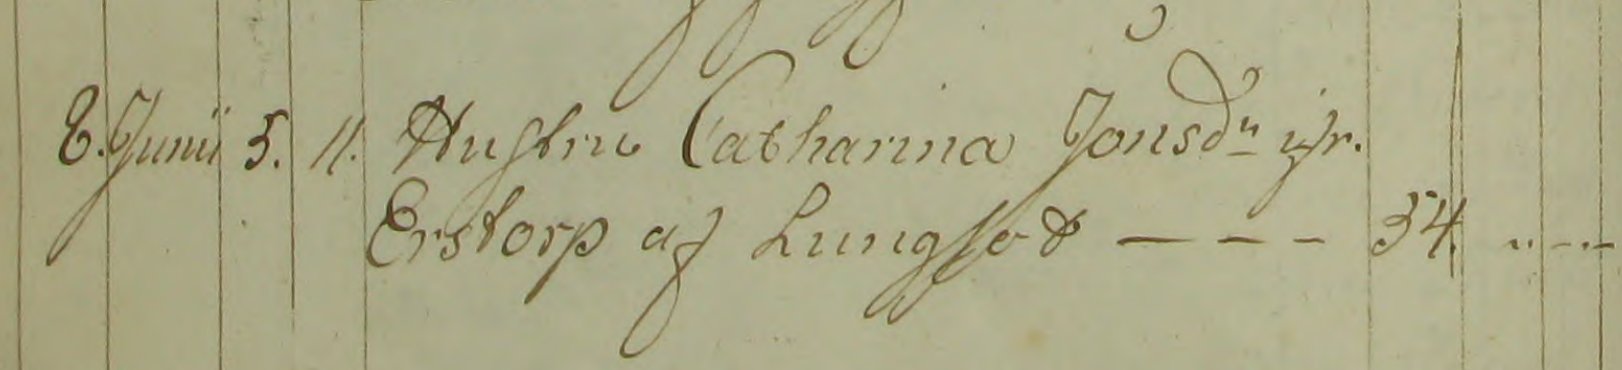 E. Junii 5. 11. Hustru Catharina Jonsdr ifr.
Erstorp af Lungsot - - - 34. - - -